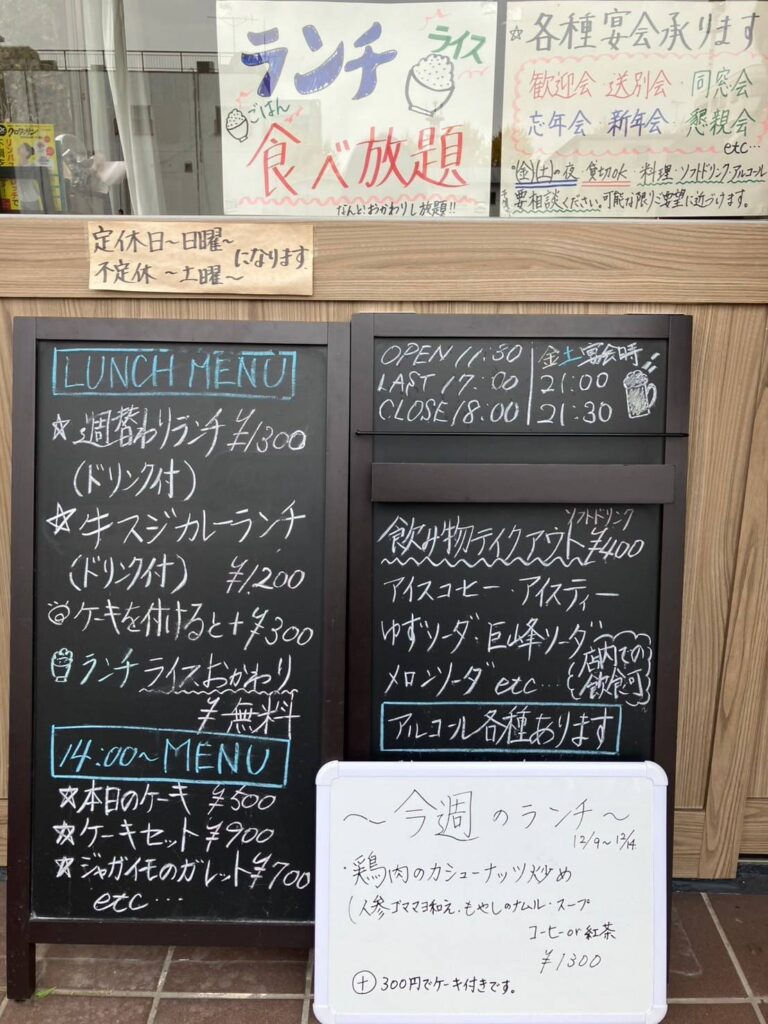 ランチ
ライス
ごはん
食べ放題
なんと!おかわりし放題!!
☆各種宴会承ります
歓迎会・送別会・同窓会
忘年会・新年会・懇親会
etc…
(金)(土)の夜・貸切OK・料理・ソフトドリンク・アルコール
要相談ください。可能な限りご要望に近づけます。
定休日〜日曜〜
不定休〜土曜〜
になります
LUNCH MENU
☆週替わりランチ ¥1300
(ドリンク付)
☆牛スジカレーランチ
(ドリンク付) ¥1,200
ケーキを付けると+¥300
ランチライスおかわり
¥無料
14:00〜MENU
☆本日のケーキ ¥500
☆ケーキセット ¥900
☆ジャガイモのガレット ¥700
etc…
OPEN 11:30
LAST 17:00
CLOSE 18:00
金土宴会時
21:00
21:30
ソフトドリンク
飲み物テイクアウト ¥400
アイスコーヒー・アイスティー
ゆずソーダ・巨峰ソーダ
メロンソーダ etc…
店内での
飲食可
アルコール各種あります
〜今週のランチ〜
12/9〜12/14
・鶏肉のカシューナッツ炒め
(人参ゴママヨ和え・もやしのナムル・スープ
コーヒーor紅茶
¥1300
⊕300円でケーキ付きです。